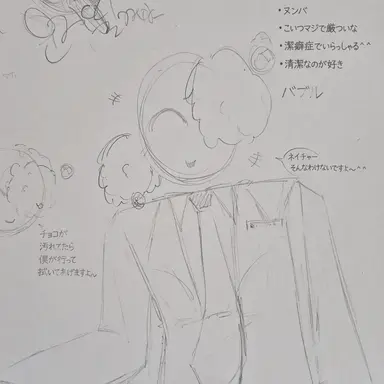 ・ヌンバ
・こいつマジで厳ついな
・潔癖症でいらっしゃる^^
・清潔なのが好き
バブル
ネイチャー
そんなわけないですとん^^
チョコが
汚れてたら
僕が行って
拭いてあげますよん